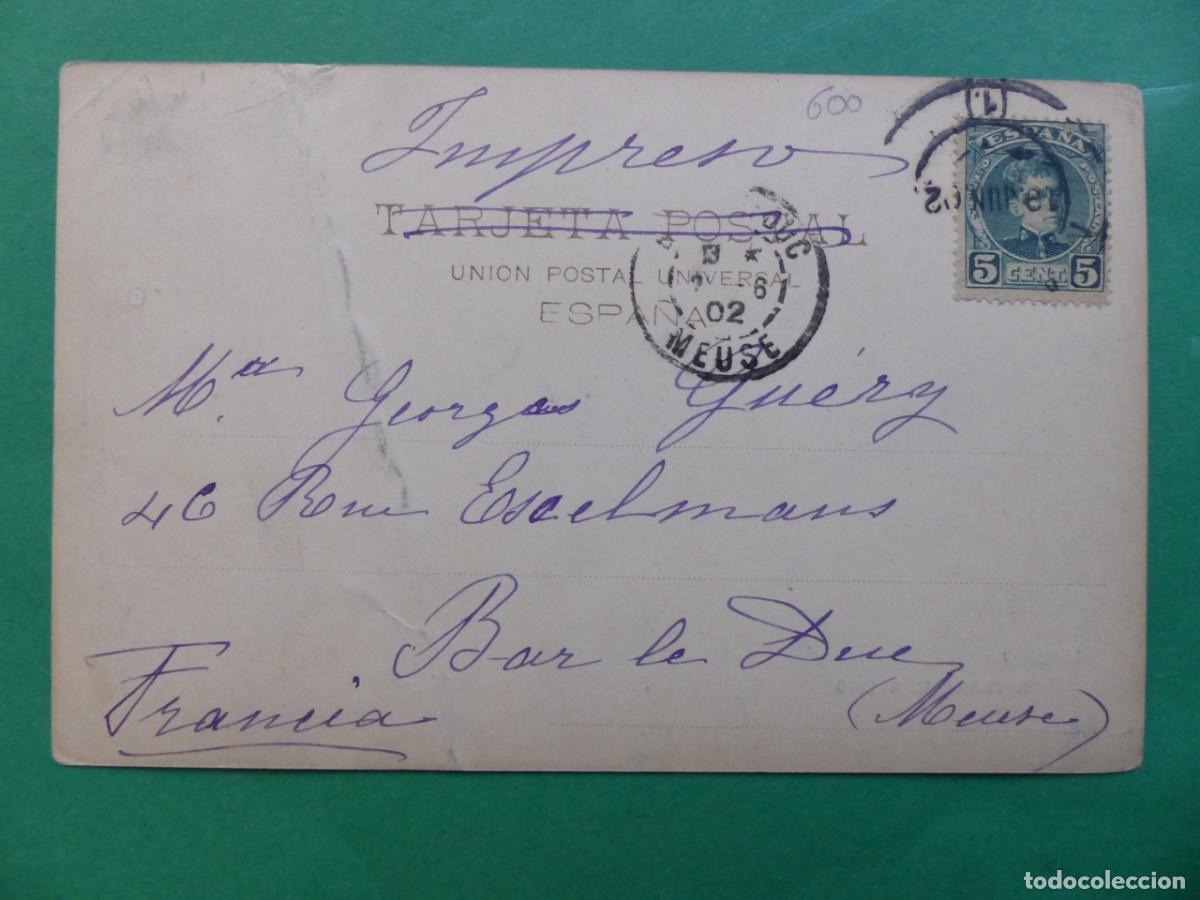 600
Impreso
TARJETA POSTAL
UNION POSTAL UNIVERSAL
ESPAÑA
1.
ESPAÑA
19 JUN 02
5 CENT. 5
DUC
6
02
MEUSE
Ma Georges Guéry
46 Rue Excelmans
Bar le Duc
Francia
(Meuse)
todocoleccion